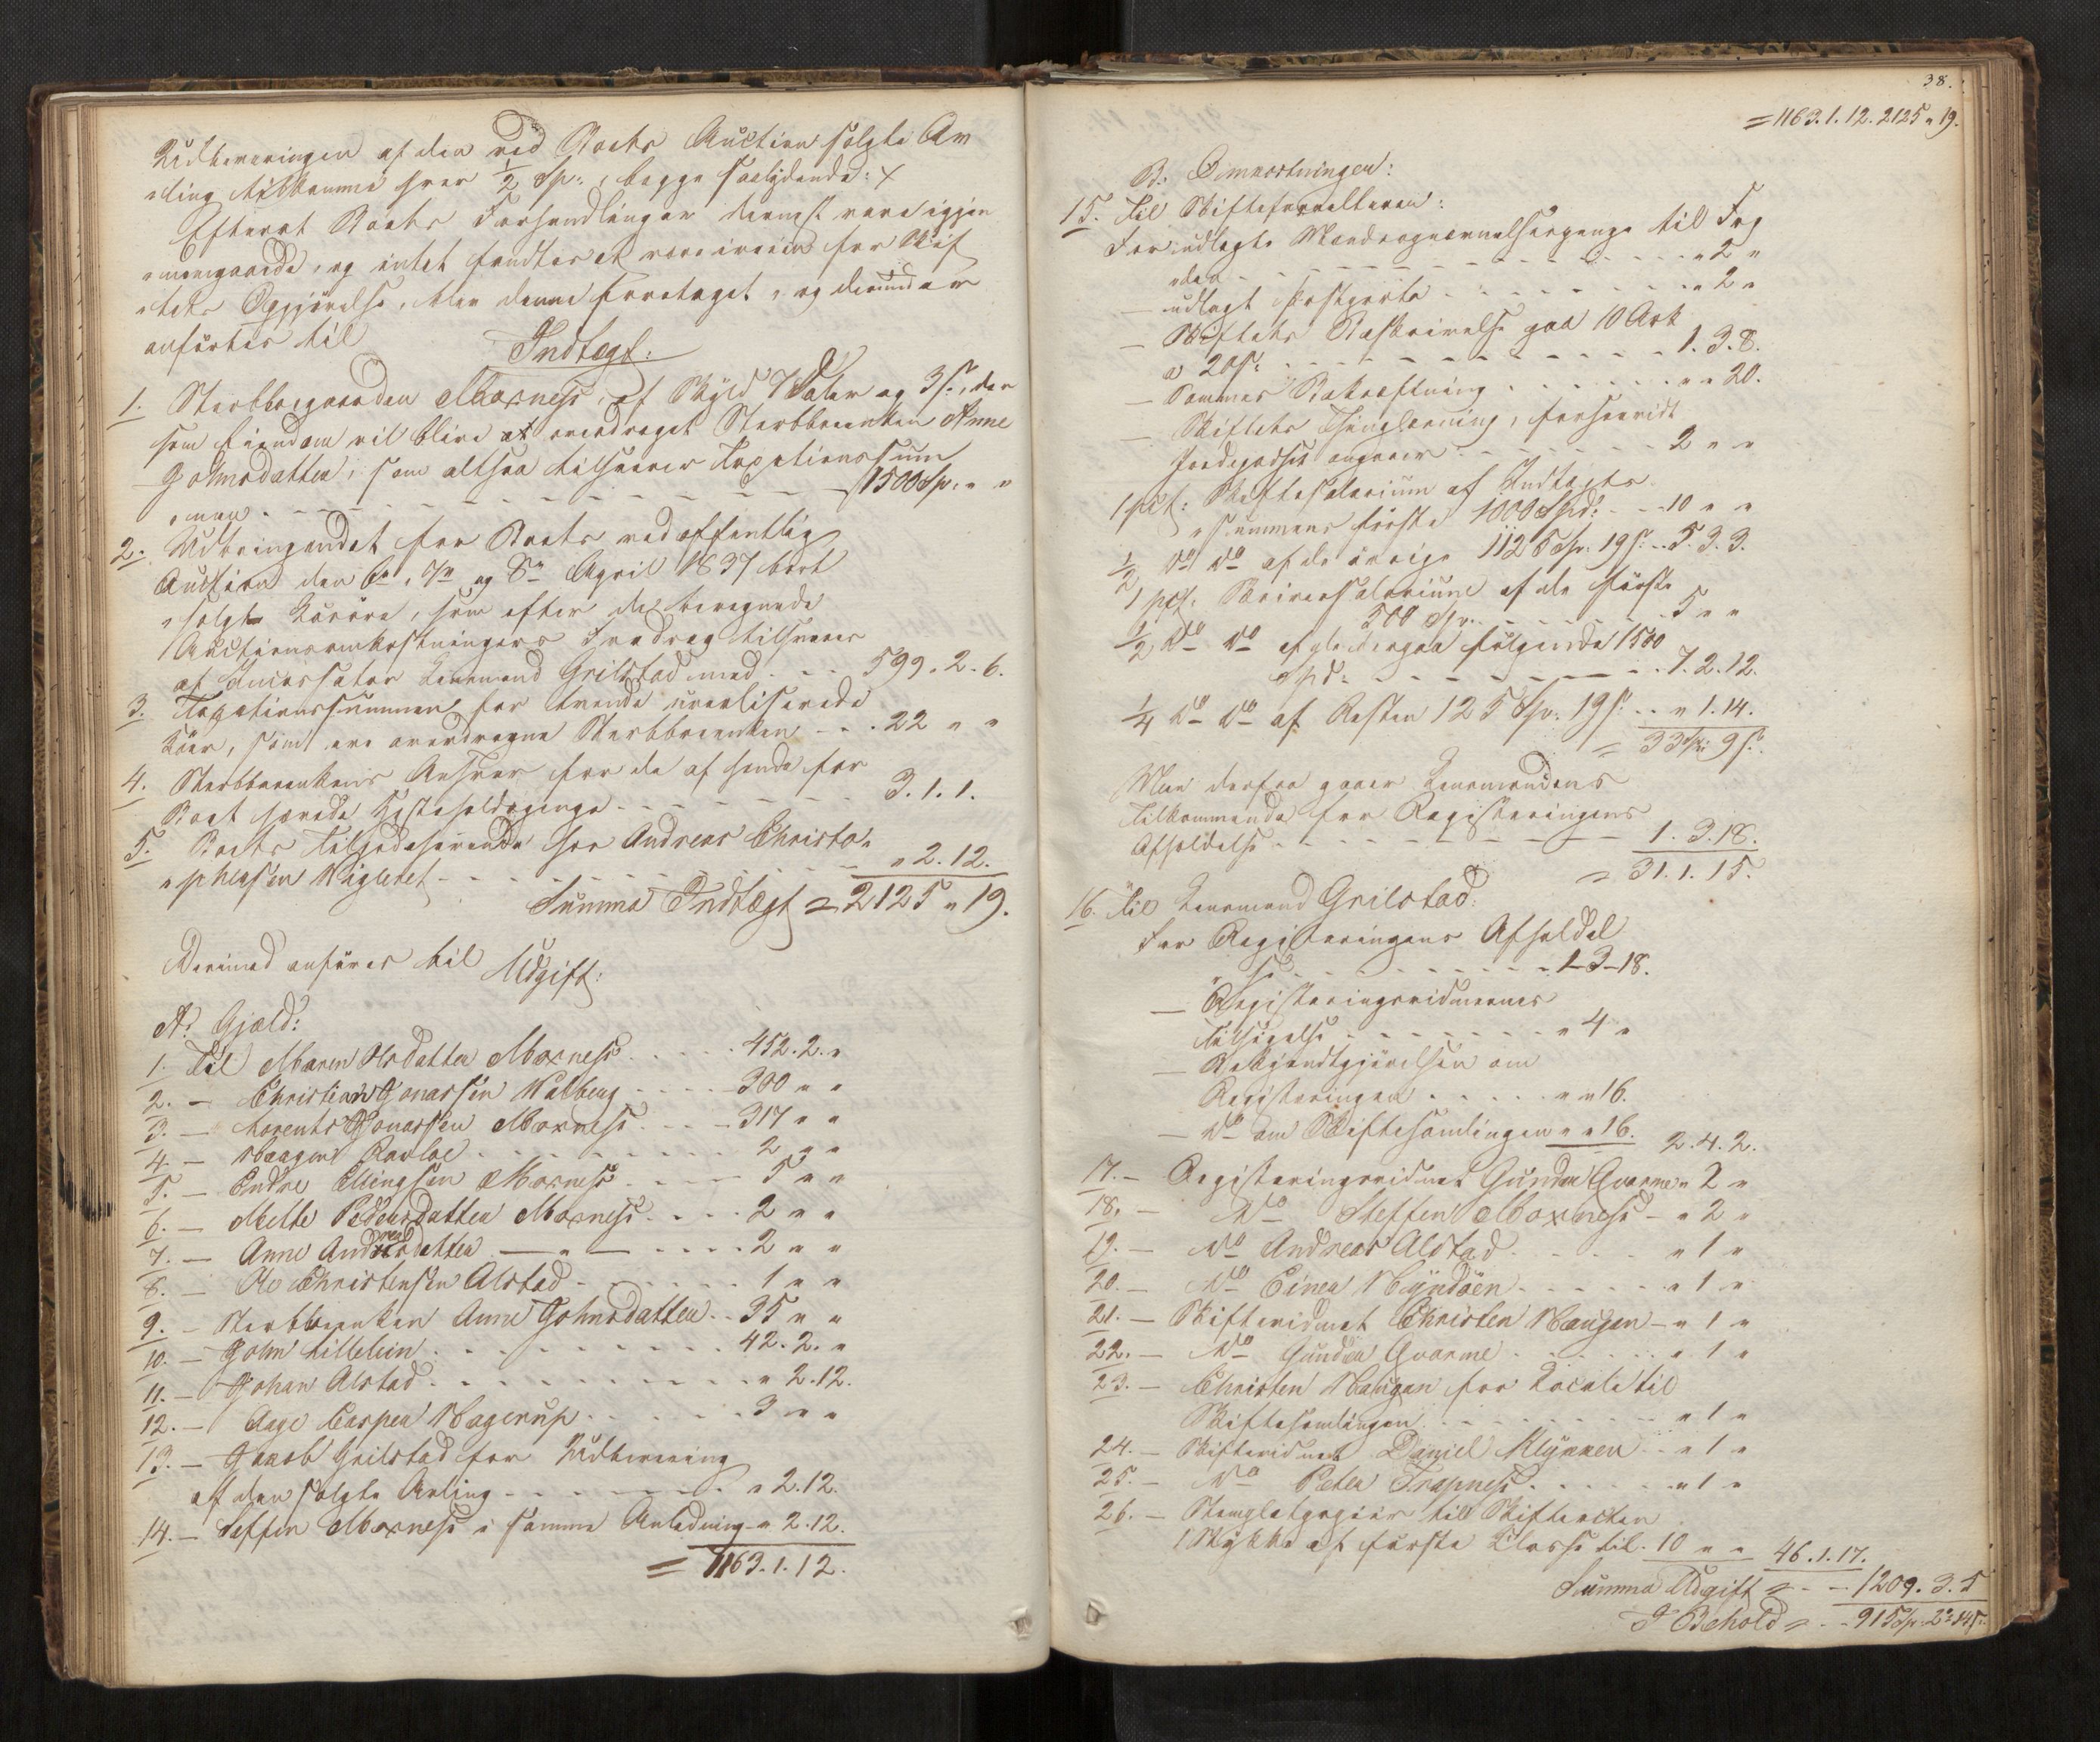 Udbevaringen af den ved Boets Auction solgte Av
„ling tilkomme hver 1/2 Sp:, begge saalydende: x
Efterat Boets Forhandlinger dernæst vare igjen
„nemgaaede, og intet fandtes at være iveien for Skif
„tets Opgjørelse, blev denne foretaget, og derunder
anførtes til
Indtægt:
1. Sterbboegaarden Moxness, af Skyld 7 Daler og 3 s., der
som Eiendom vil blive at overdraget Sterbboenken Anne
Johnsdatter, som altsaa tilsvarer Taxationssum
„men - - - 1500 Sp: „ „
2. Udbringendet for Boets ved offentlig
Auction den 6te, 7de og 8de April 1837 bort
„solgte Løsøre, som efter de beregnede
Auctionsomkostningers Fradrag tilsvares
af Incassator Lensmand Grilstad med - - 599. 2. 6.
3. Taxationssummen for tvende urealiserede
Køer, som ere overdragne Sterbboenken - - 22 „ „
4. Sterbboenkens Ansvar for de af hende for
Boet hævede Hesteholdspenge - - - 3. 1. 1.
5. Boets Tilgodehavende hos Andreas Christo„
„phersen Vigteret - - - „ 2. 12.
Summa Indtægt = 2125 „ 19.
Derimod anføres til
Udgift:
A. Gjæld:
1. Til Maren Olsdatter Moxness - - - 452. 2. „
2. — Christian Jonassen Walberg - - - 300 „ „
3. — Lorents Jonassen Moxness - - - 317 „ „
4. — - - - 2 „ „
5. — Endre Ellingsen Moxness - - - 5 „ „
6. — Mette Pedersdatter Moxness - - - 2 „ „
7. — Anne Andreasdatter — „ — - - - 2 „ „
8. — Ole Christensen Alstad - - - 1 „ „
9. — Sterbboenken Anne Johnsdatter - - 35 „ „
10. — John Lillelien - - - 42. 2. „
11. — Johan Alstad - - - „ 2. 12.
12. — Aage Casper Hagerup - - - 3 „ „
13. — Jacob Grilstad for Udbevaring
af den solgte Avling - - - „ 2. 12.
14. — Steffen Moxness i samme Anledning - „ 2. 12.
= 1163. 1. 12.
38.
= 1163. 1. 12. 2125 „ 19.
B. Omkostninger:
15. Til Skifteforvalteren:
For udlagte Mændsopnævnelsespenge til Fog
„den - - - „ 2 „
— udlagt Postporto - - - „ 2 „
— Skiftets Beskrivelse paa 10 Ark
a 20 s: - - - 1. 3. 8.
— Sammes Bekræftning - - - „ „ 20.
— Skiftets Thinglæsning, forsaavidt
Jordegodset angaaer - - - 2 „ „
1 pct: Skiftesalarium af Indtægts
„summens første 1000 Spd: - - 10 „ „
1/2 do do af de øvrige 1125 Sp: 19 s: - - 5. 3. 3.
1 pct. Skriversalarium af de første
500 Sp: - - - 5 „ „
1/2 do do af de derpaa følgende 1500
Spd: - - - 7. 2. 12.
1/4 do do af Resten 125 Sp: 19 s: - - „ 1. 14.
= 33 Sp: 9 s.
Men derfra gaaer Lensmandens
Tilkommende for Registeringens
Afholdelse - - - 1. 3. 18.
= 31. 1. 15.
16. Til Lensmand Grilstad:
For Registeringens Afholdel
„se - - - 1-3-18.
— Registeringsvidnernes
Tilsigelse - - - „ 4 „
— Bekjendtgjørelsen om
Registeringen - - - „ „ 16.
— do om Skiftesamlingen „ „ 16. 2. 4. 2.
17. — Registeringsvidnet Gunder Qvarme „ 2 „
18. — do Steffen Moxness - „ 2 „
19. — do Andreas Alstad - - - „ 1 „
20. — do Einer - - - „ 1 „
21. — Skiftevidnet Christen Haugan - „ 1 „
22. — do Gunder Qvarme - - - „ 1 „
23. — Christen Haugan for Locale til
Skiftesamlingen - - - „ 1 „
24. — Skiftevidnet Daniel - - „ 1 „
25. — do Peter Trapness - - - „ 1 „
26. — Stemplet papiir til Skifteacten
1 Stykke af første Classe til - 10 „ „ 46. 1. 17.
Summa Udgift = - - 1209. 3. 5
I Behold = - - 915 Sp: 2 # 14 s: